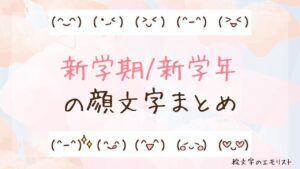 (^‿^) (•ᴗ<) (>ᴗ<) (^-^) (>ᴗ<)
新学期/新学年
の顔文字まとめ
(^-^)✨ (~ᴗ~) (^▽^) (◡‿◡) (♡‿♡)
絵文字のエモリスト